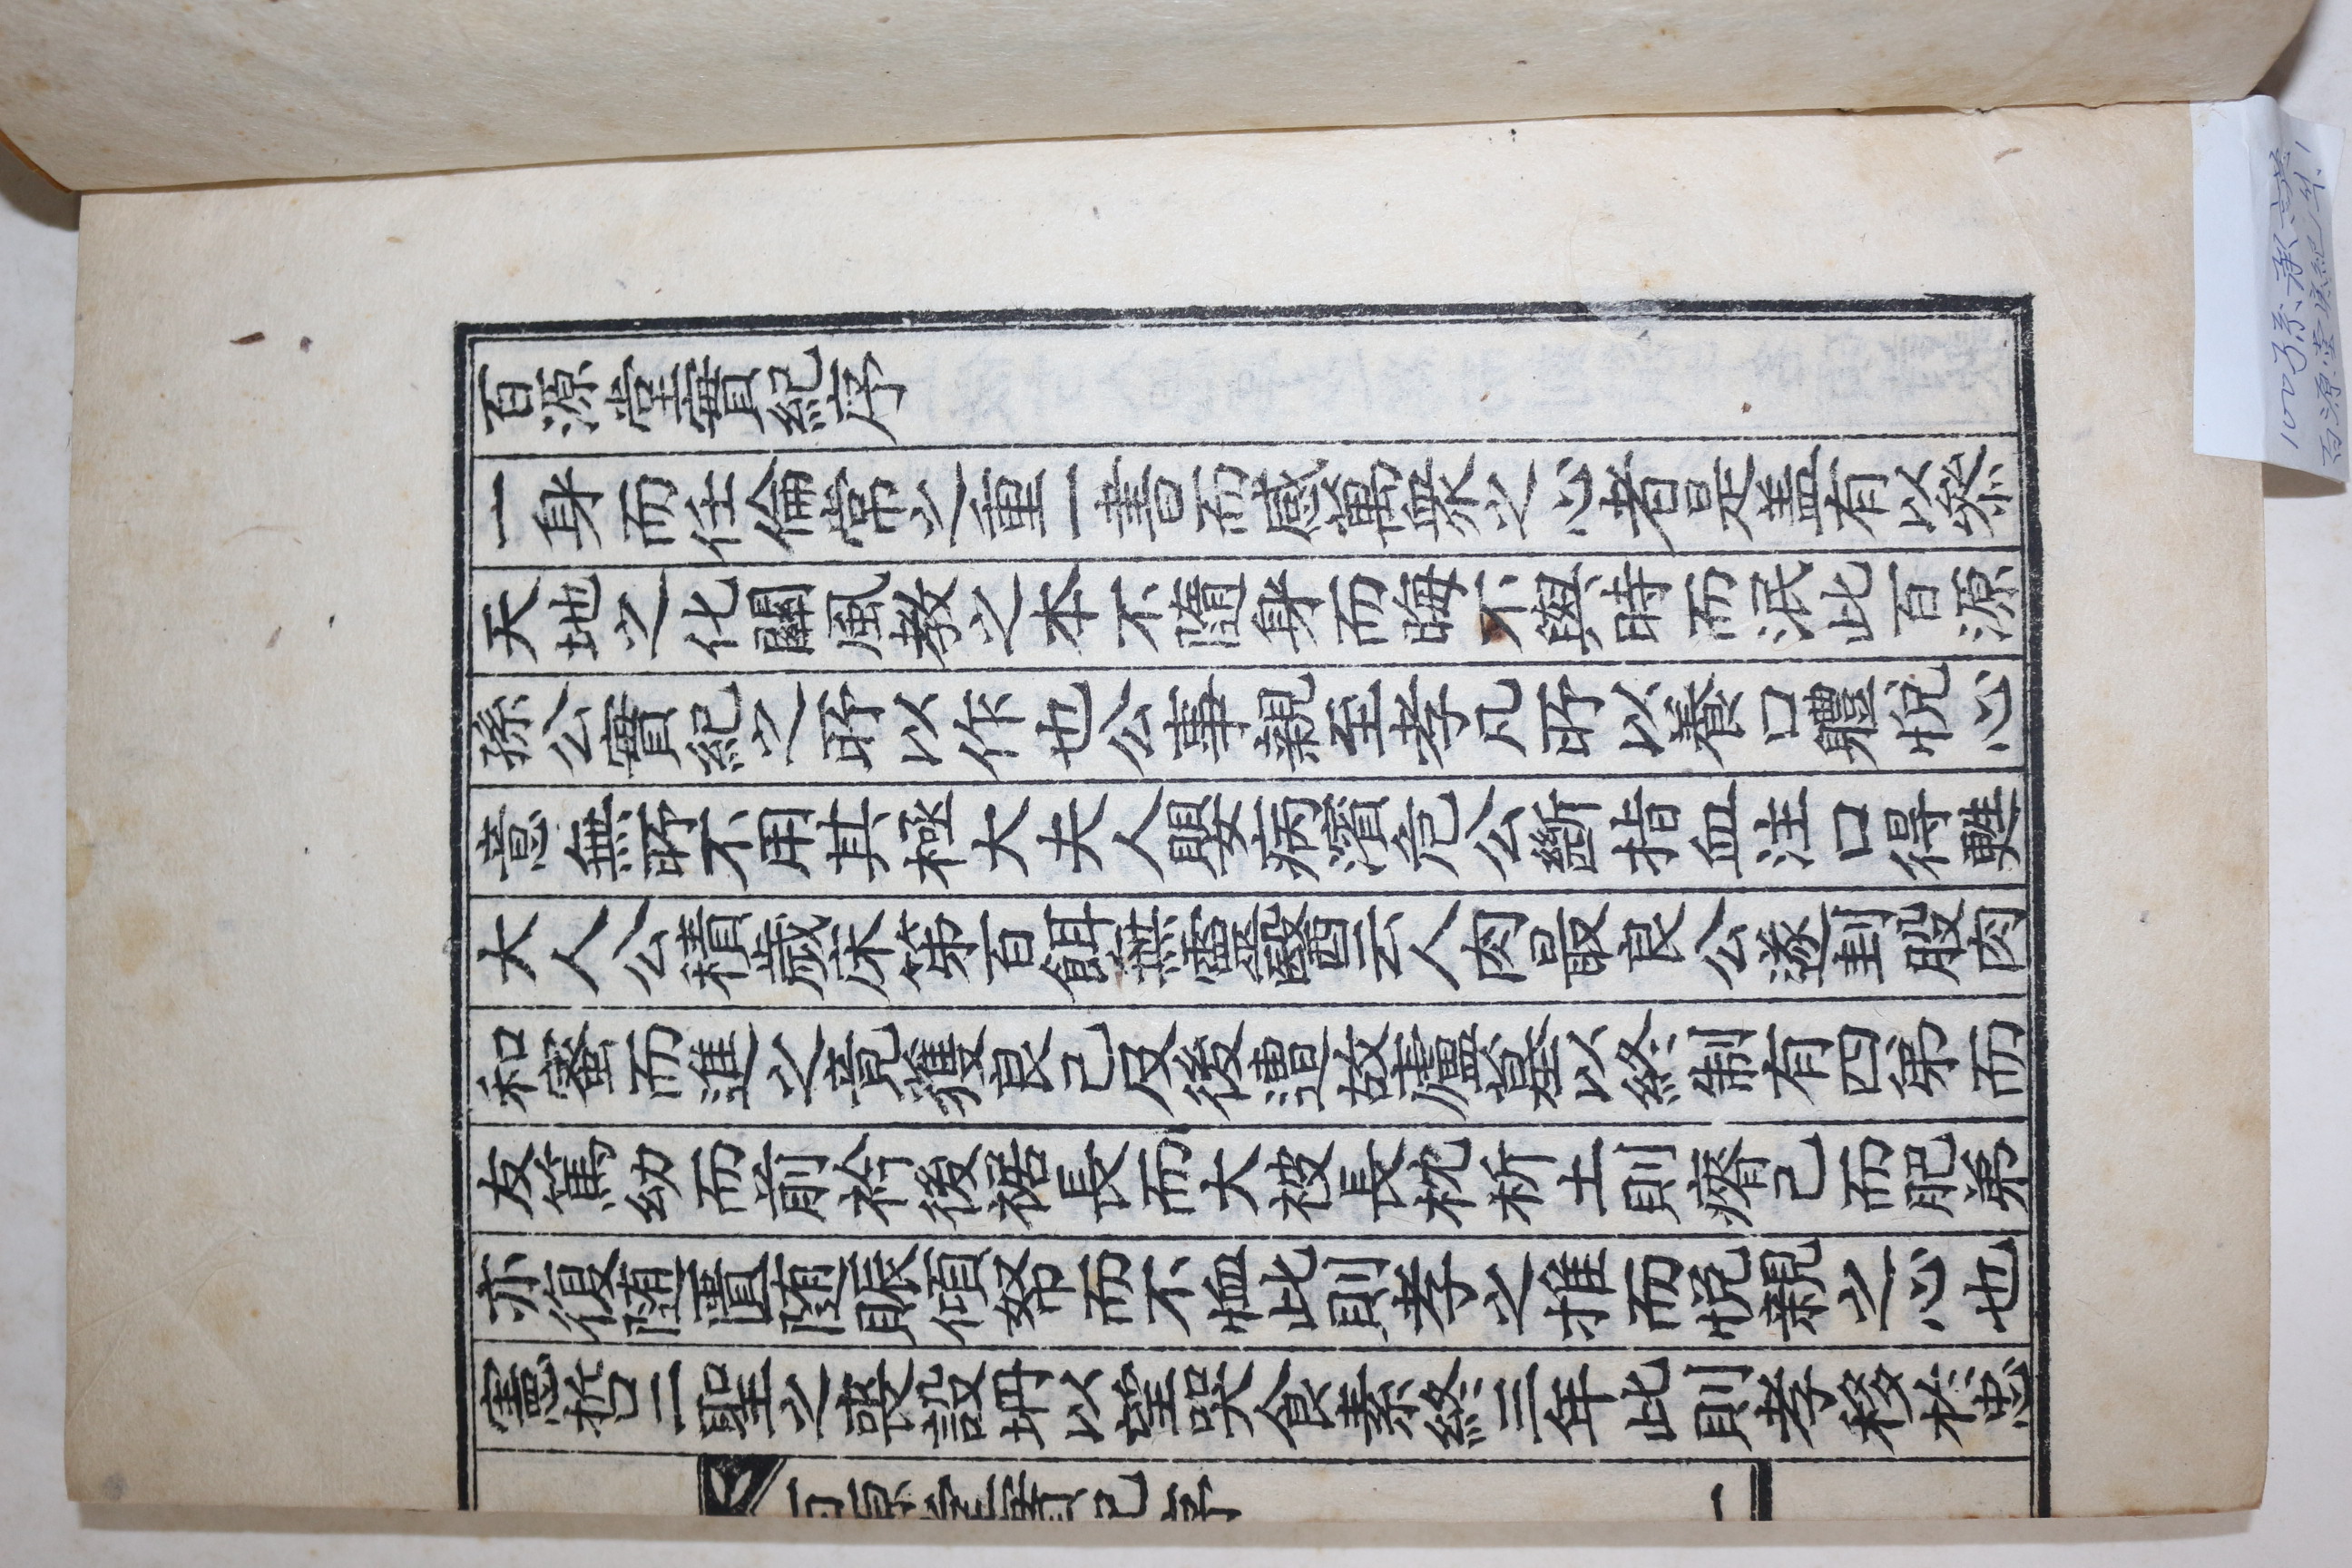 百源堂實紀序
一身而任倫常之重一書而感萬衆之心者是盖有以叅
天地之化關風教之本不隨身而晦不與時而泯此百源
孫公實紀之所以作也公事親至孝凡所以養口軆悅心
意無所不用其極大夫人嬰病濱危公斷指血注口得甦
大人公積歲床第百餌無靈醫云人肉最良公遂刲股肉
和蜜而進之竟獲良已及後遭故廬墓以終制有四弟而
友篤幼而前衿後裾長而大被長枕析土則瘠己而肥弟
亦復随匱随賑傾帑而不恤此則孝之推而悅親之心也
憲哲二聖之喪設坍以望哭食素終三年此則孝移於忠
百源堂實紀序
一
100 孫承謨
百源堂實紀 牛1